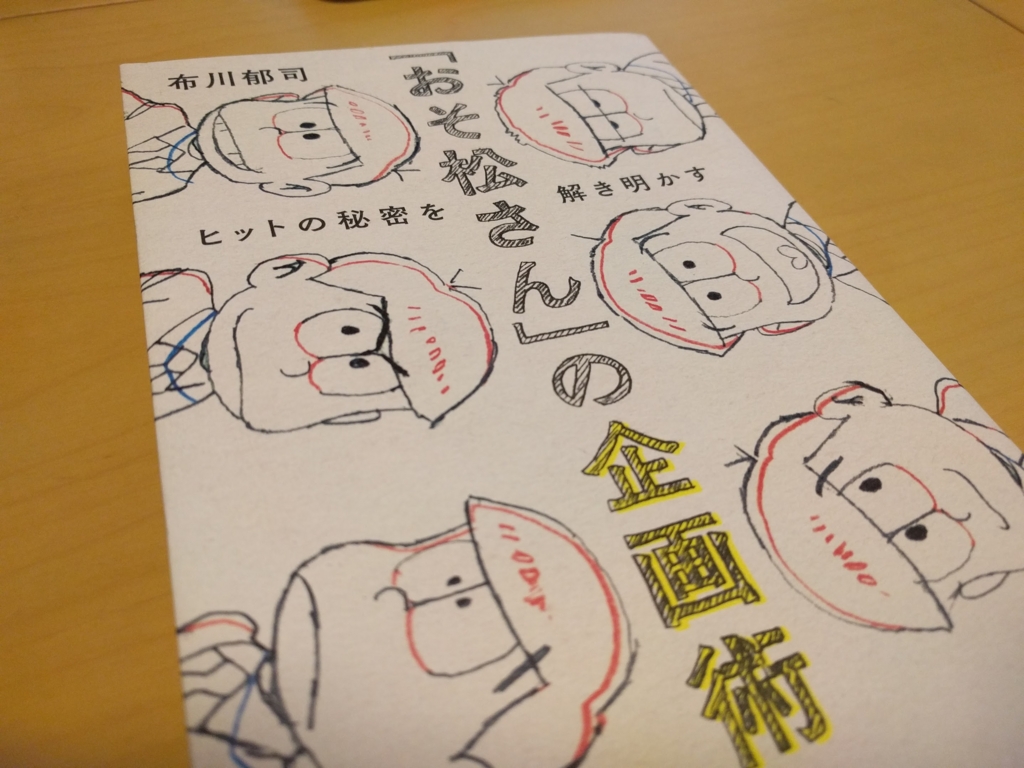 布川郁司
「おそ松さん」の企画術
ヒットの秘密を
解き明かす